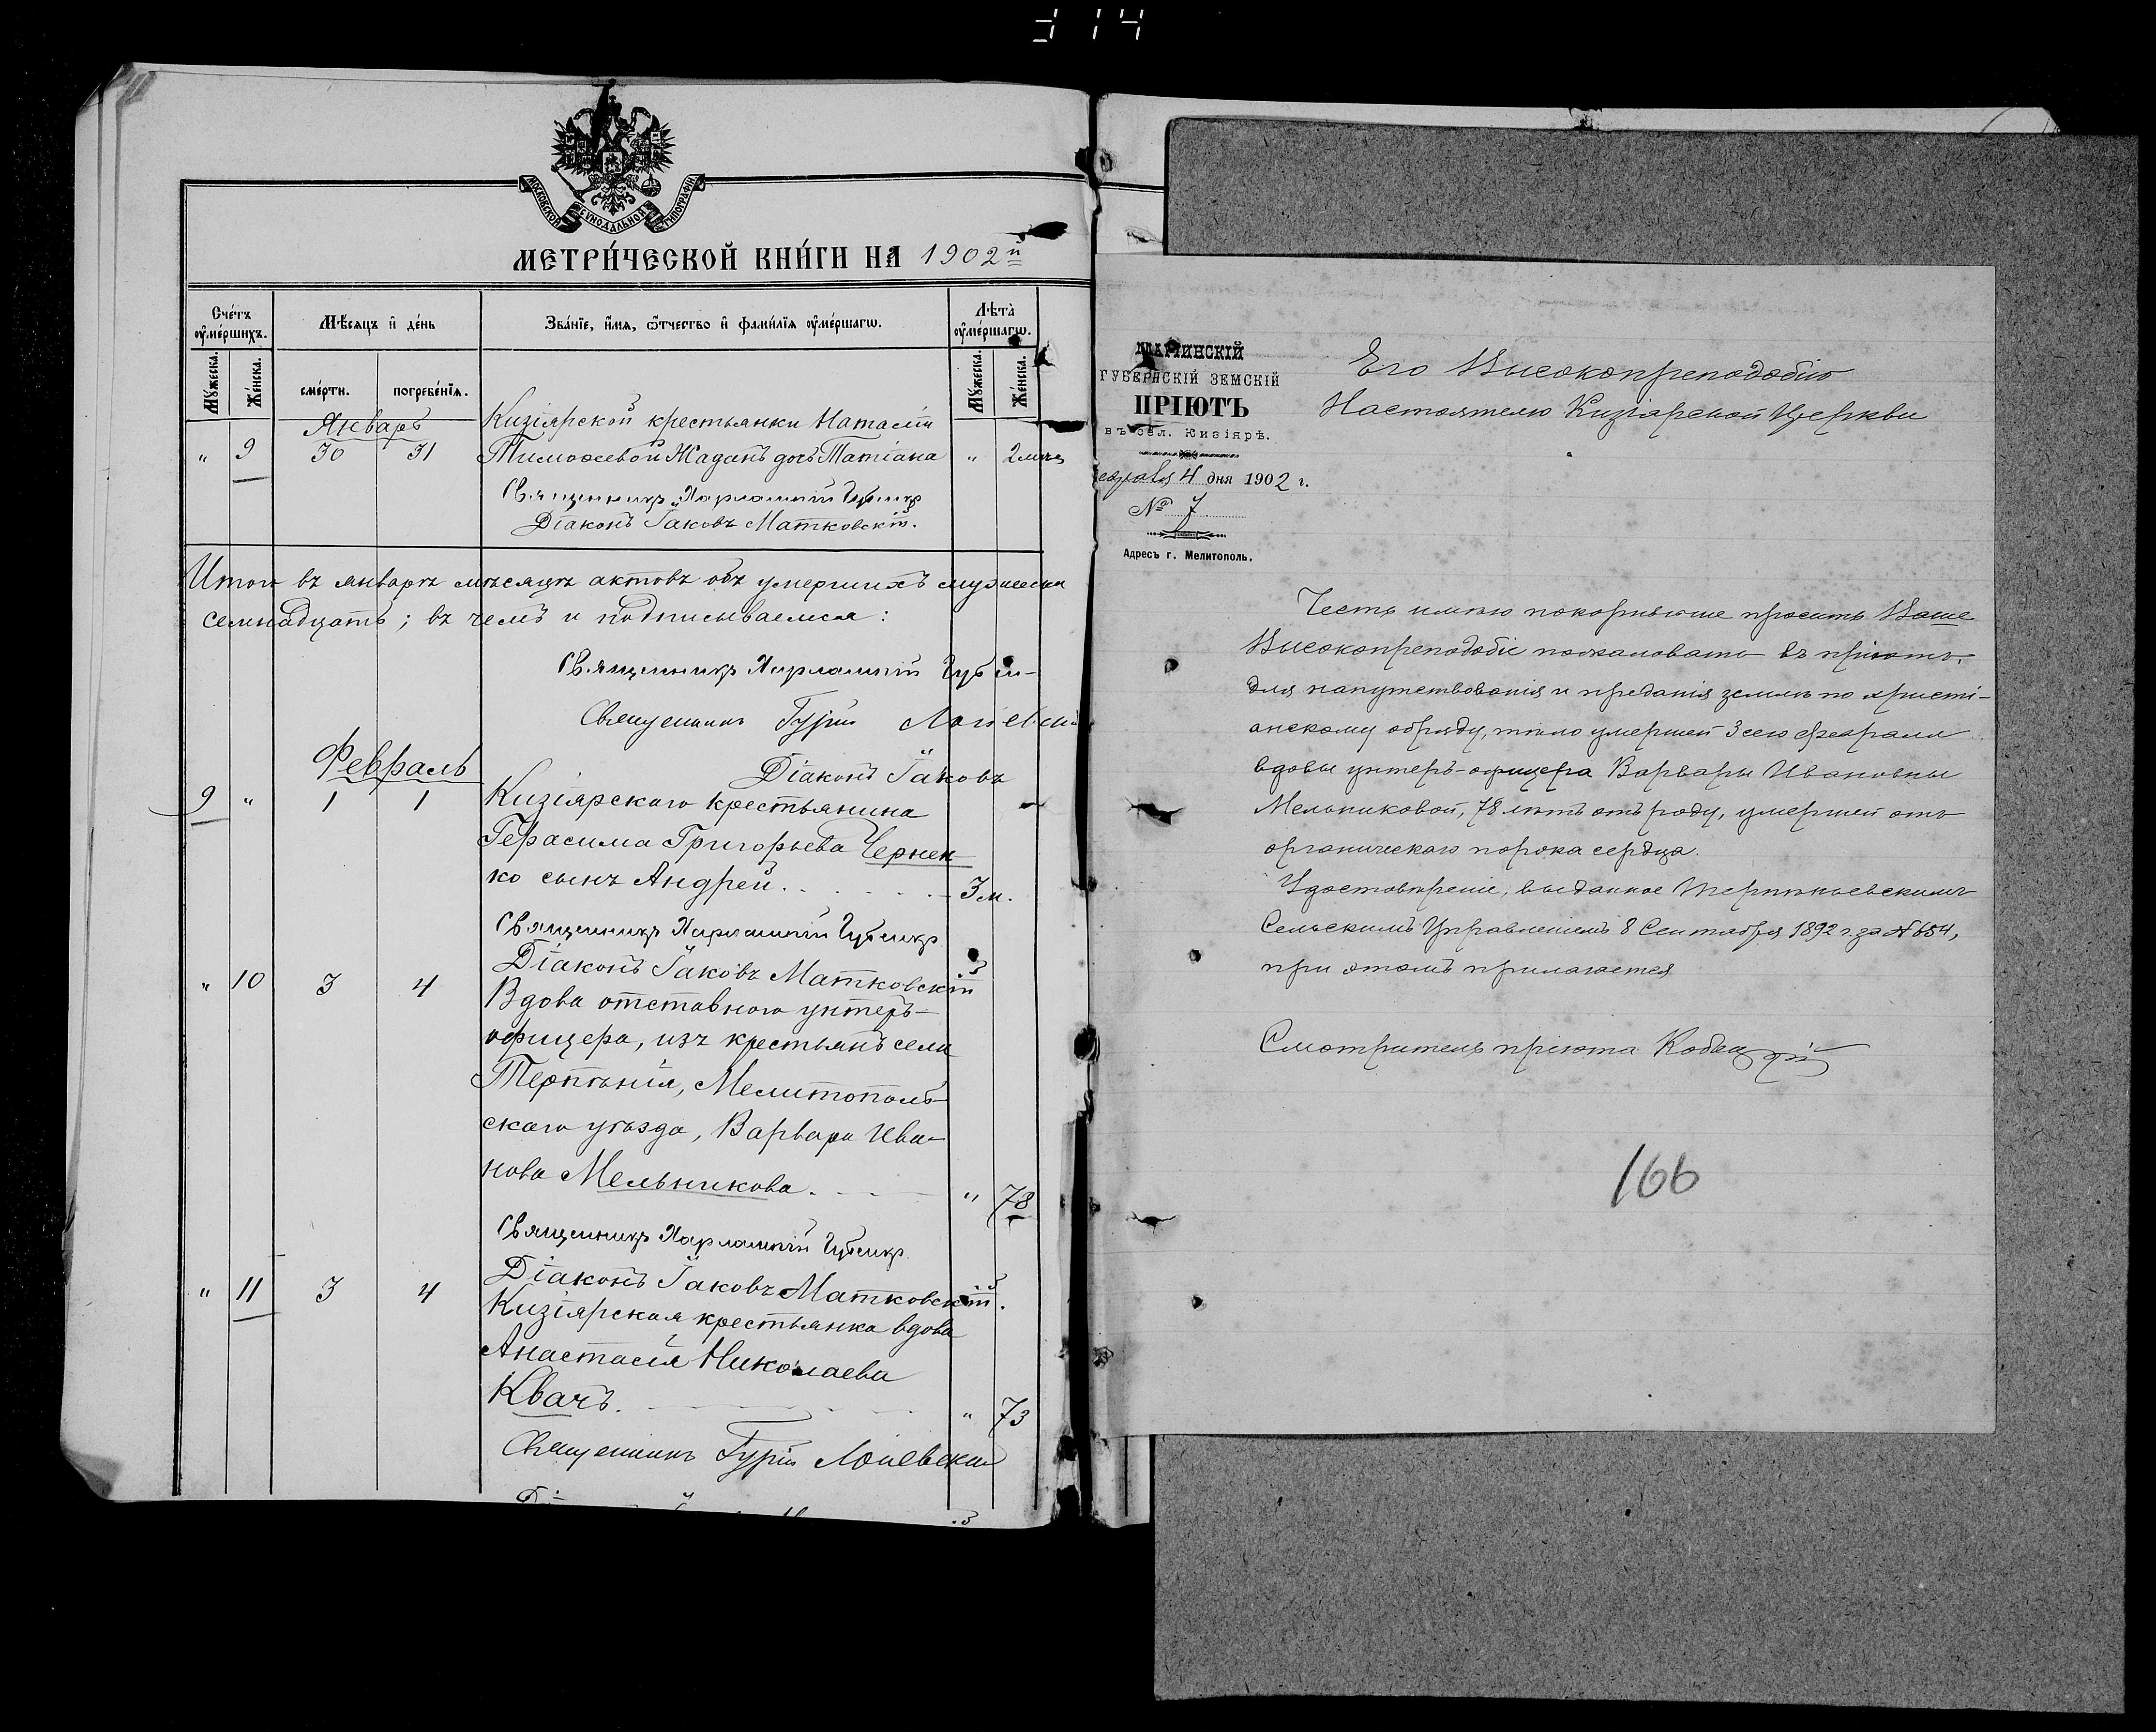 314
МОСКОВСКОЙ СѴНОДАЛЬНОЙ ТИПОГРАФІИ
МЕТРИ́ЧЕСКОЙ КНИ́ГИ НА 1902й
Сче́тъ ᲂу҆ме́ршихъ.
Мѣ́сяцъ и҆ де́нь
Зва́нїе, и҆́мѧ, ѻ҆́тчество и҆ фами́лїѧ ᲂу҆ме́ршагѡ.
Лѣта̀ ᲂу҆ме́ршагѡ.
Мꙋ́жеска. Же́нска. сме́рти. погребе́нїѧ. Мꙋ́жеска. Же́нска.
Январь
Кизіярской крестьянки Наталіи
" 9 30 31 Тимофевой Жаданъ дочь Татіана " 2 мѣс
Священникъ Харлампій
Діаконъ Іаковъ Матковскій.
Итого въ январѣ мѣсяцѣ актовъ объ умершихъ мужеска
семнадцать; въ чемъ и подписываемся:
Священникъ Харлампій
Священникъ Гурій
Діаконъ Іаковъ
Февраль
9 " 1 1 Кизіярскаго крестьянина
Герасима Григорьева Чернен-
ко сынъ Андрей. 3 м.
Священникъ Харлампій
Діаконъ Іаковъ Матковскій
" 10 3 4 Вдова отставного унтеръ-
офицера, изъ крестьянъ села
Терпѣнія, Мелитополь-
скаго уѣзда, Варвара Ива-
нова Мельникова. " 78
Священникъ Харлампій
Діаконъ Іаковъ Матковскій.
" 11 3 4 Кизіярская крестьянка вдова
Анастасія Николаева
Квачъ. " 73
Священникъ Гурій
МАРІИНСКІЙ
ГУБЕРНСКІЙ ЗЕМСКІЙ
ПРІЮТЪ
въ сел. Кизіярѣ.
евраля 4 дня 1902 г.
№ 7
Адресъ г. Мелитополь.
Его Высокопреподобію
Настоятелю Кизіарской Церкви
Честь имѣю покорнѣйше просить Ваше
Высокопреподобіе пожаловать въ пріютъ,
для напутствованія и преданія землѣ по христі-
анскому обряду, тѣло умершей 3 сего февраля
вдовы унтеръ-офицера Варвары Ивановны
Мельниковой, 78 лѣтъ отъ роду, умершей отъ
органическаго порока сердца.
Удостовѣреніе, выданное Терпѣньевскимъ
Сельскимъ Управленіемъ 8 Сентября 1892 г. за № 654,
при этомъ прилагается
Смотритель пріюта
166